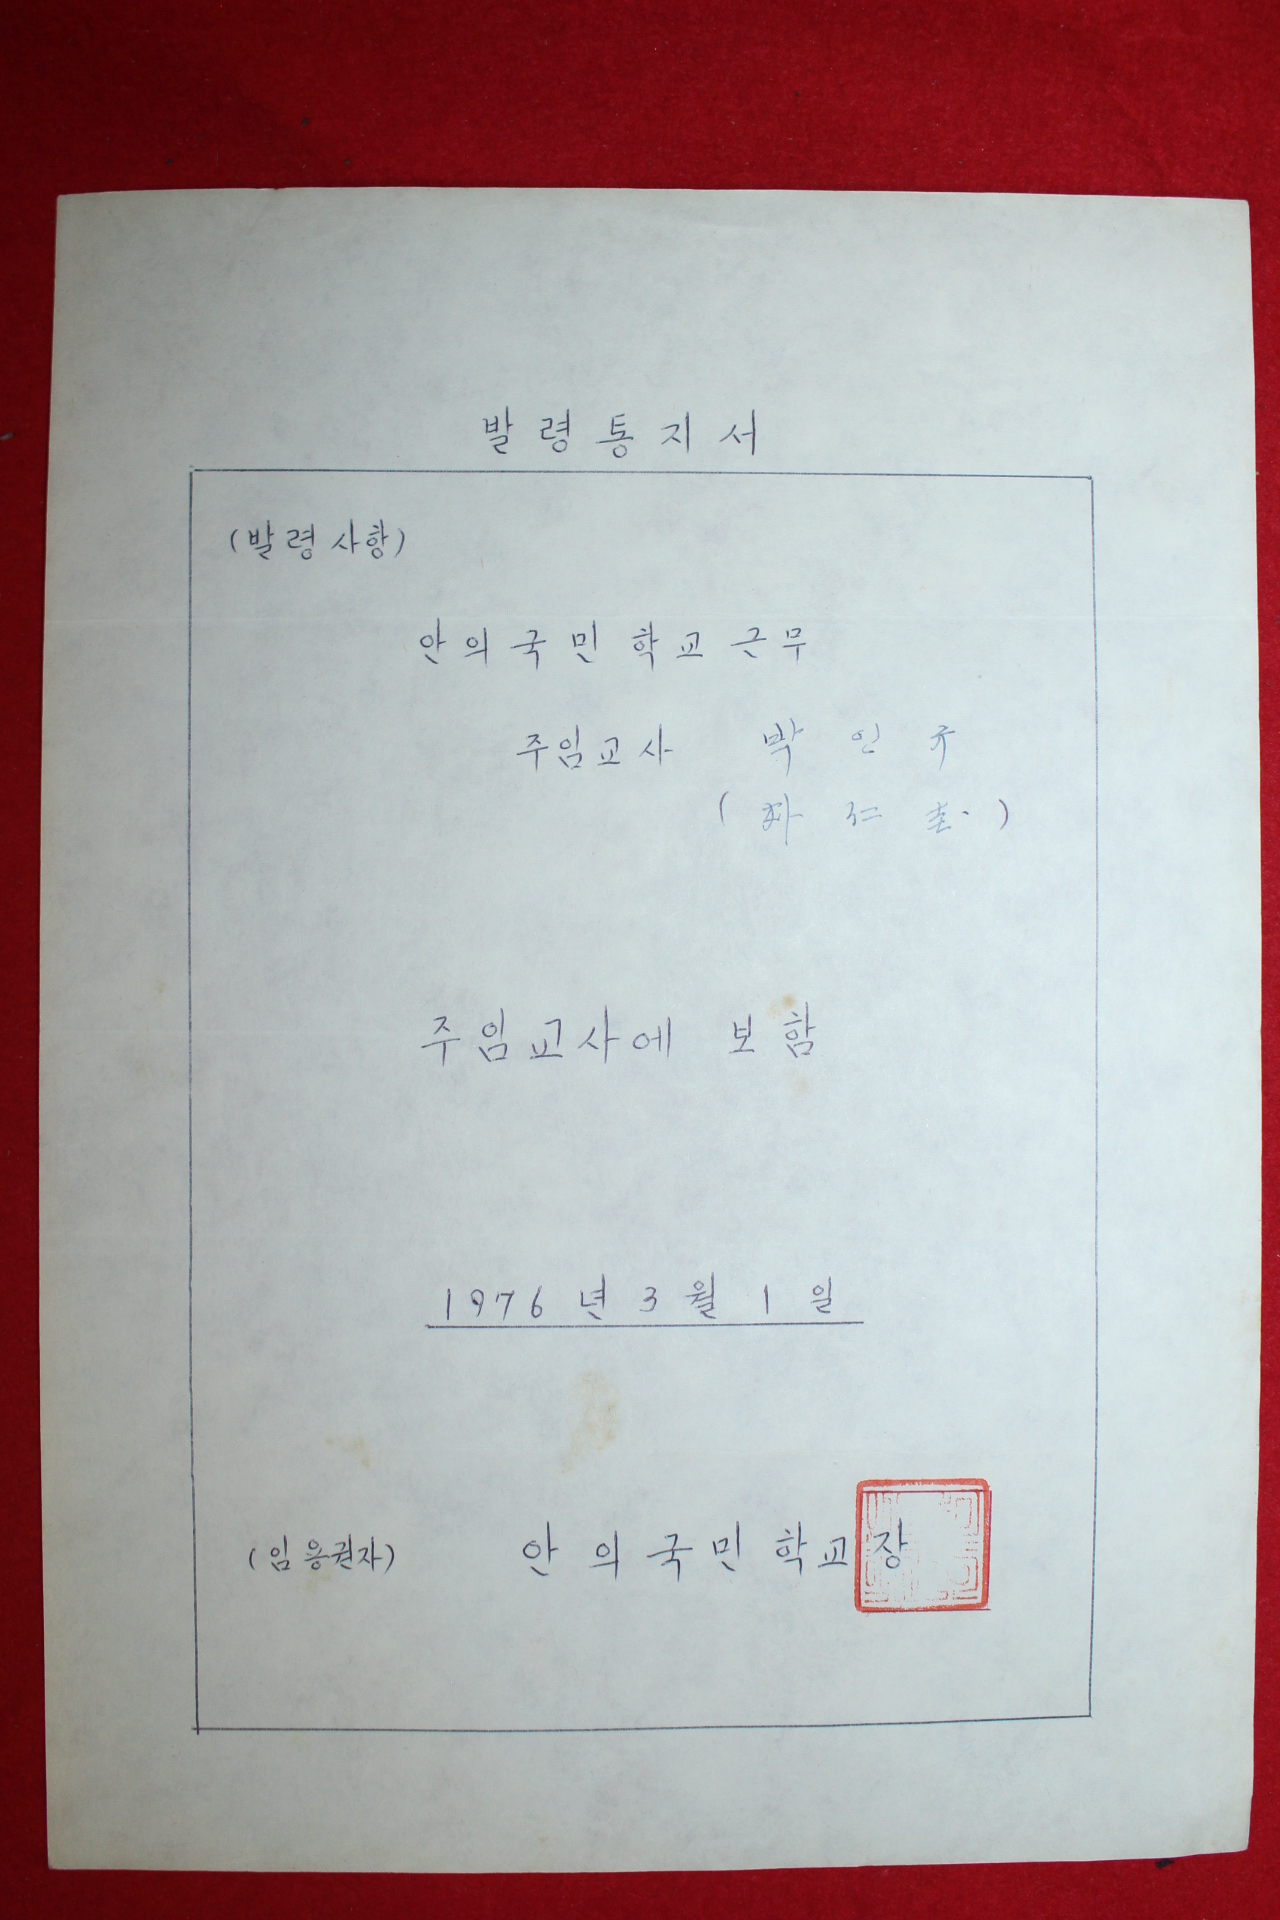 발령통지서
(발령사항)
안의국민학교근무
주임교사 박인규
(朴仁圭)
주임교사에 보함
1976년 3월 1일
(임용권자) 안의국민학교장